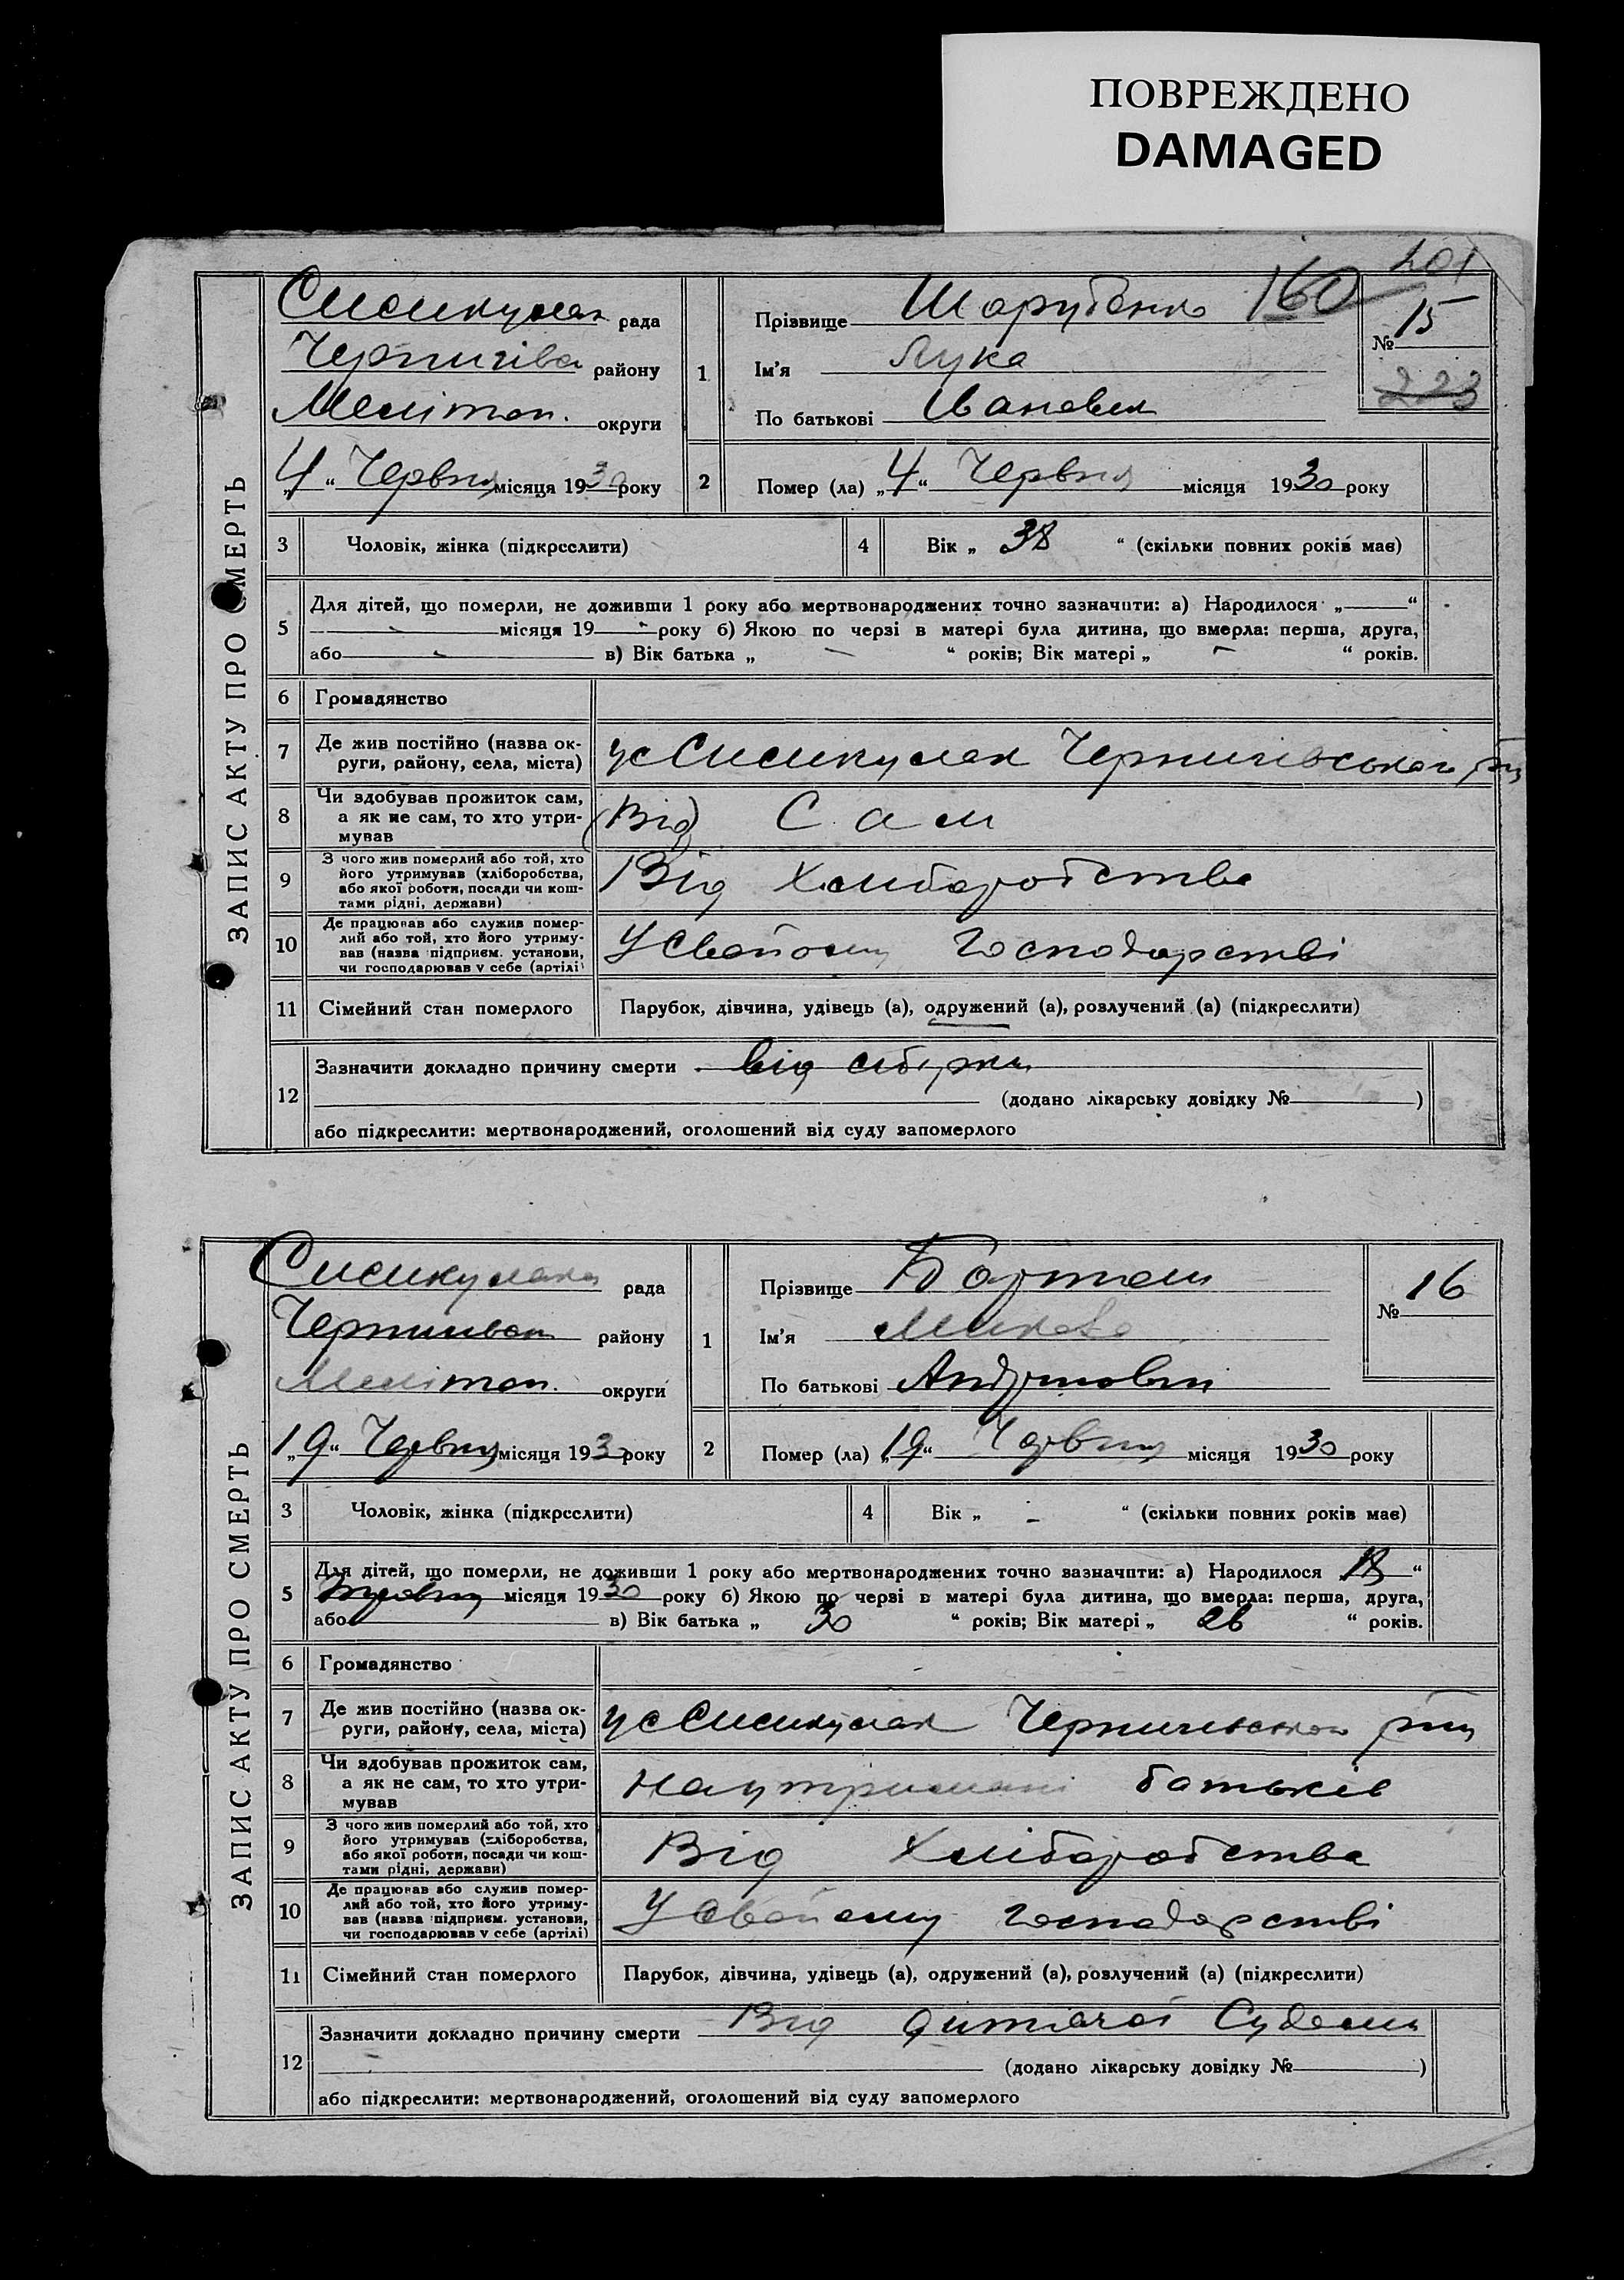 ПОВРЕЖДЕНО
DAMAGED
201
160
ЗАПИС АКТУ ПРО СМЕРТЬ
рада
району
Меліто п. округи
„4“ Червня місяця 1930 року
1
Прізвище
Ім'я Лука
По батькові Іванович
№ 15
223
2 Помер (ла) „4“ Червня місяця 1930 року
3 Чоловік, жінка (підкреслити)
4 Вік „ 38 “ (скільки повних років має)
5 Для дітей, що померли, не доживши 1 року або мертвонароджених точно зазначити: а) Народилося „ “
місяця 19 року б) Якою по черзі в матері була дитина, що вмерла: перша, друга,
або в) Вік батька „ - “ років; Вік матері „ - “ років.
6 Громадянство
7 Де жив постійно (назва ок-
руги, району, села, міста)
8 Чи здобував прожиток сам,
а як не сам, то хто утри-
мував
(Від) Сам
9 З чого жив померлий або той, хто
його утримував (хліборобства,
або якої роботи, посади чи кош-
тами рідні, держави)
Від Хліборобства
10 Де працював або служив помер-
лий або той, хто його утриму-
вав (назва підприєм. установи,
чи господарював у себе (артілі)
У Свойому Господарстві
11 Сімейний стан померлого Парубок, дівчина, удівець (а), одружений (а), розлучений (а) (підкреслити)
12 Зазначити докладно причину смерти від
(додано лікарську довідку № )
або підкреслити: мертвонароджений, оголошений від суду запомерлого
ЗАПИС АКТУ ПРО СМЕРТЬ
рада
району
Меліто п. округи
„19“ Червня місяця 1930 року
1
Прізвище
Ім'я
По батькові
№ 16
2 Помер (ла) „19“ Червня місяця 1930 року
3 Чоловік, жінка (підкреслити)
4 Вік „ - “ (скільки повних років має)
5 Для дітей, що померли, не доживши 1 року або мертвонароджених точно зазначити: а) Народилося 18“
місяця 1930 року б) Якою по черзі в матері була дитина, що вмерла: перша, друга,
або в) Вік батька „ 30 “ років; Вік матері „ 26 “ років.
6 Громадянство
7 Де жив постійно (назва ок-
руги, району, села, міста)
8 Чи здобував прожиток сам,
а як не сам, то хто утри-
мував
На утриманні батьків
9 З чого жив померлий або той, хто
його утримував (хліборобства,
або якої роботи, посади чи кош-
тами рідні, держави)
Від Хліборобства
10 Де працював або служив помер-
лий або той, хто його утриму-
вав (назва підприєм. установи,
чи господарював у себе (артілі)
У Свойому господарстві
11 Сімейний стан померлого Парубок, дівчина, удівець (а), одружений (а), розлучений (а) (підкреслити)
12 Зазначити докладно причину смерти Від
(додано лікарську довідку № )
або підкреслити: мертвонароджений, оголошений від суду запомерлого